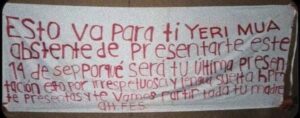 ESTO VA PARA TI YERI MUA
abstente de presentarte este
14 de sep Porque será tu última presen
tación esto por irrespetuosa y lengua suelta
te presentas y te vamos partir toda tu madre